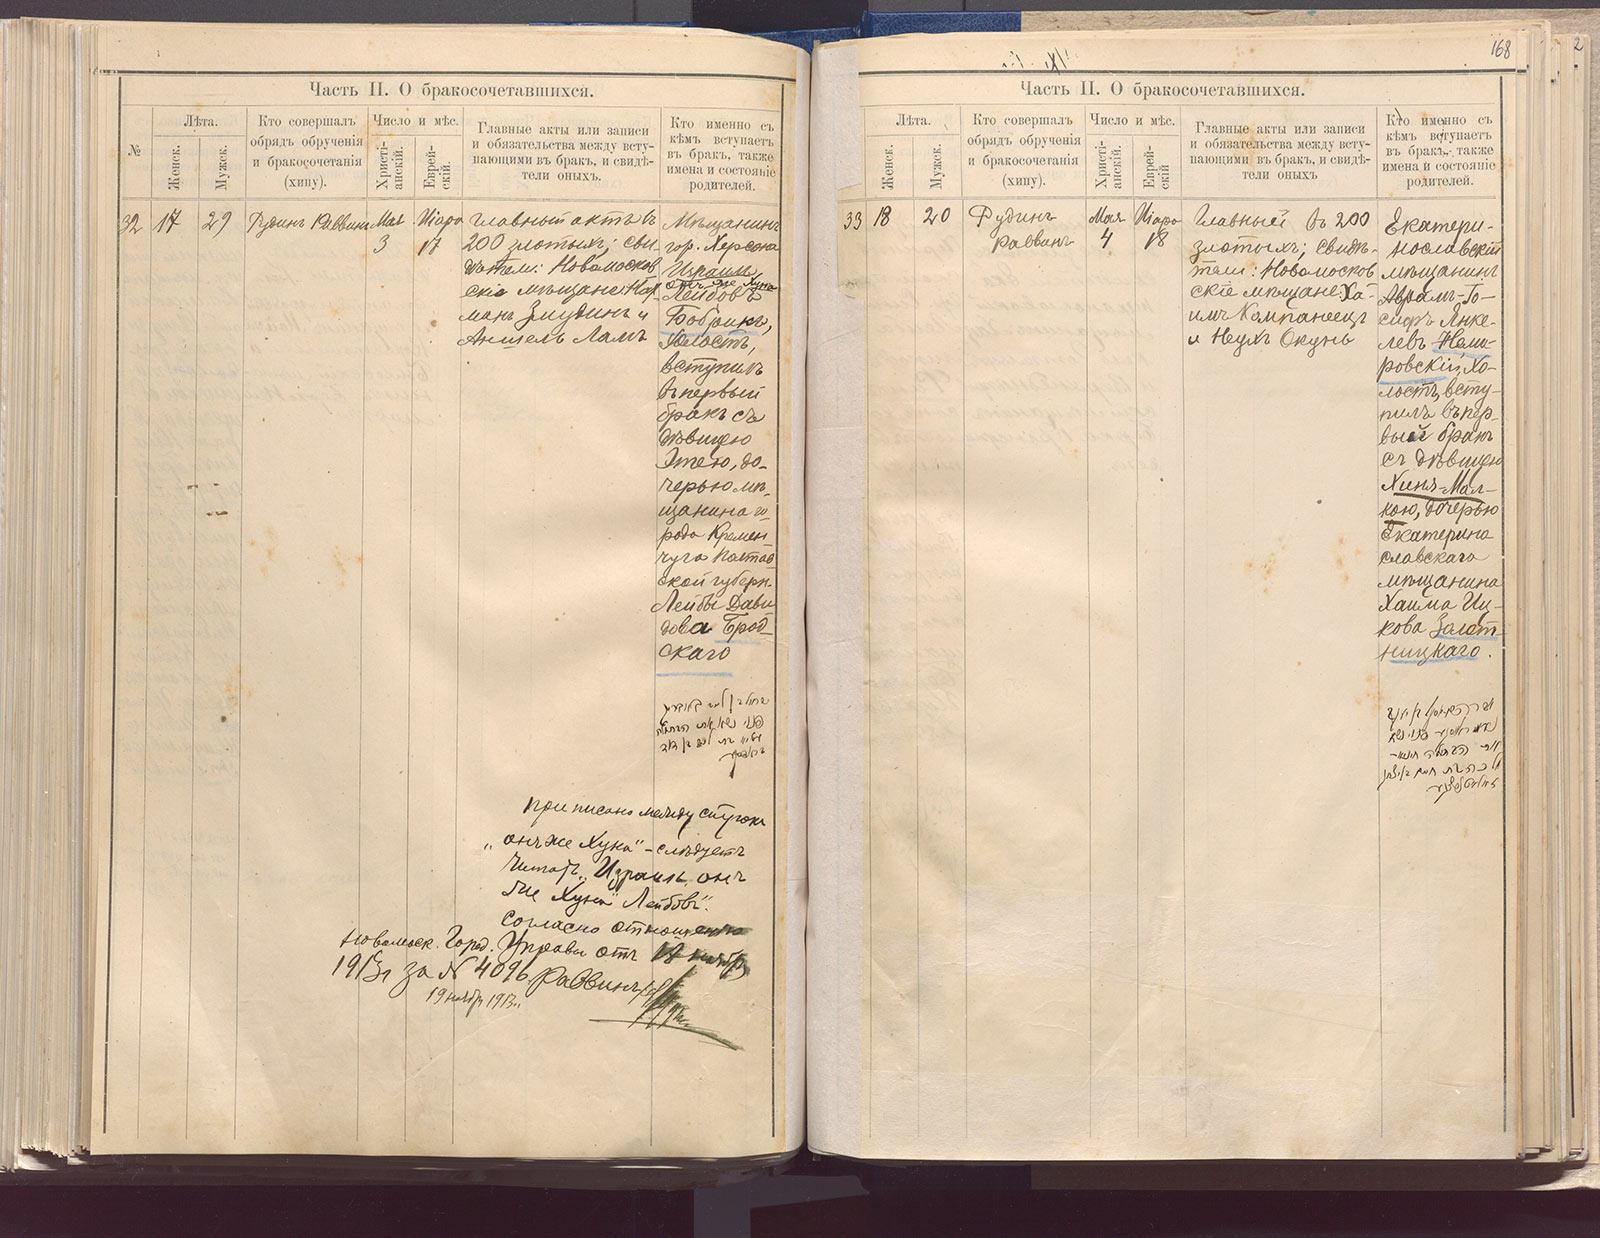 Часть II. О бракосочетавшихся.
№
Лѣта.
Женск.
Мужск.
Кто совершалъ
обрядъ обрученія
и бракосочетанія
(хипу).
Число и мѣс.
Христі-
анскій.
Еврей-
скій.
Главные акты или записи
и обязательства между всту-
пающими въ бракъ, и свидѣ-
тели оныхъ.
Кто именно съ
кѣмъ вступаетъ
въ бракъ, также
имена и состояніе
родителей.
32
17
29
Рудинъ Раввинъ
Мая
3
Иіаро
17
Главный актъ въ
200 злотыхъ; сви-
дѣтели: Новомосков
скіе мѣщане:
манъ и
Аншель Ламъ
Мѣщанинъ
гор. Херсона
Израиль
онъ же Хуна
Лейбовъ
Бобринъ,
Холостъ,
вступилъ
въ первый
бракъ съ
дѣвицею
Этею, до-
черью мѣ-
щанина го
рода Кремен
чуга Полтав
ской губерн.
Лейбы Дави
дова Брод-
скаго
Приписано между строкъ
„онъ же Хуна" – слѣдуетъ
читать „Израиль онъ
же Хуна Лейбовъ".
Согласно отношенію
Новомоск. Город. Управы отъ 18 ноября
1913г за № 4096. Раввинъ
19 ноября 1913г.
168
Часть II. О бракосочетавшихся.
Лѣта.
Женск.
Мужск.
Кто совершалъ
обрядъ обрученія
и бракосочетанія
(хипу).
Число и мѣс.
Христі-
анскій.
Еврей-
скій.
Главные акты или записи
и обязательства между всту-
пающими въ бракъ, и свидѣ-
тели оныхъ
Кто именно съ
кѣмъ вступаетъ
въ бракъ, также
имена и состояніе
родителей.
33
18
20
Рудинъ
раввинъ
Мая
4
Иіаро
18
Главный въ 200
злотыхъ; свидѣ-
тели: Новомосков
скіе мѣщане: Ха-
имъ Компанеецъ
и Неухъ Окунь
Екатери-
нославскій
мѣщанинъ
Аврамъ-Іо-
сифъ Янке-
левъ Неми-
ровскій, Хо-
лостъ, всту-
пилъ въ пер-
вый бракъ
съ дѣвицею
Хиня-Мал-
кою, дочерью
Екатерино
славскаго
мѣщанина
Хаима Иц-
кова Золот-
ницкаго.